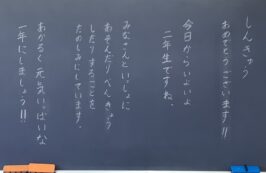 しんきゅう
おめでとうございます!!
今日からいよいよ
二年生ですね。
みなさんといっしょに
あそんだりべんきょう
したりすることを
たのしみにしています。
あかるく元気いっぱいな
一年にしましょう!!